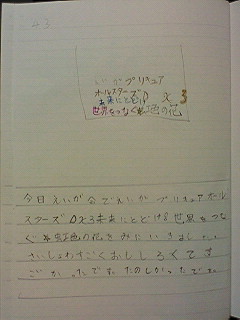 43
えいがプリキュア
オールスターズDX3
未来にとどけ
世界をつなぐ虹色の花
今日えいがかんでえいがプリキュアオール
スターズDX3未来にとどける世界をつな
ぐ虹色の花をみにいきました。
さいしょわすごくおもしろくてす
ごかったです。たのしかったです。